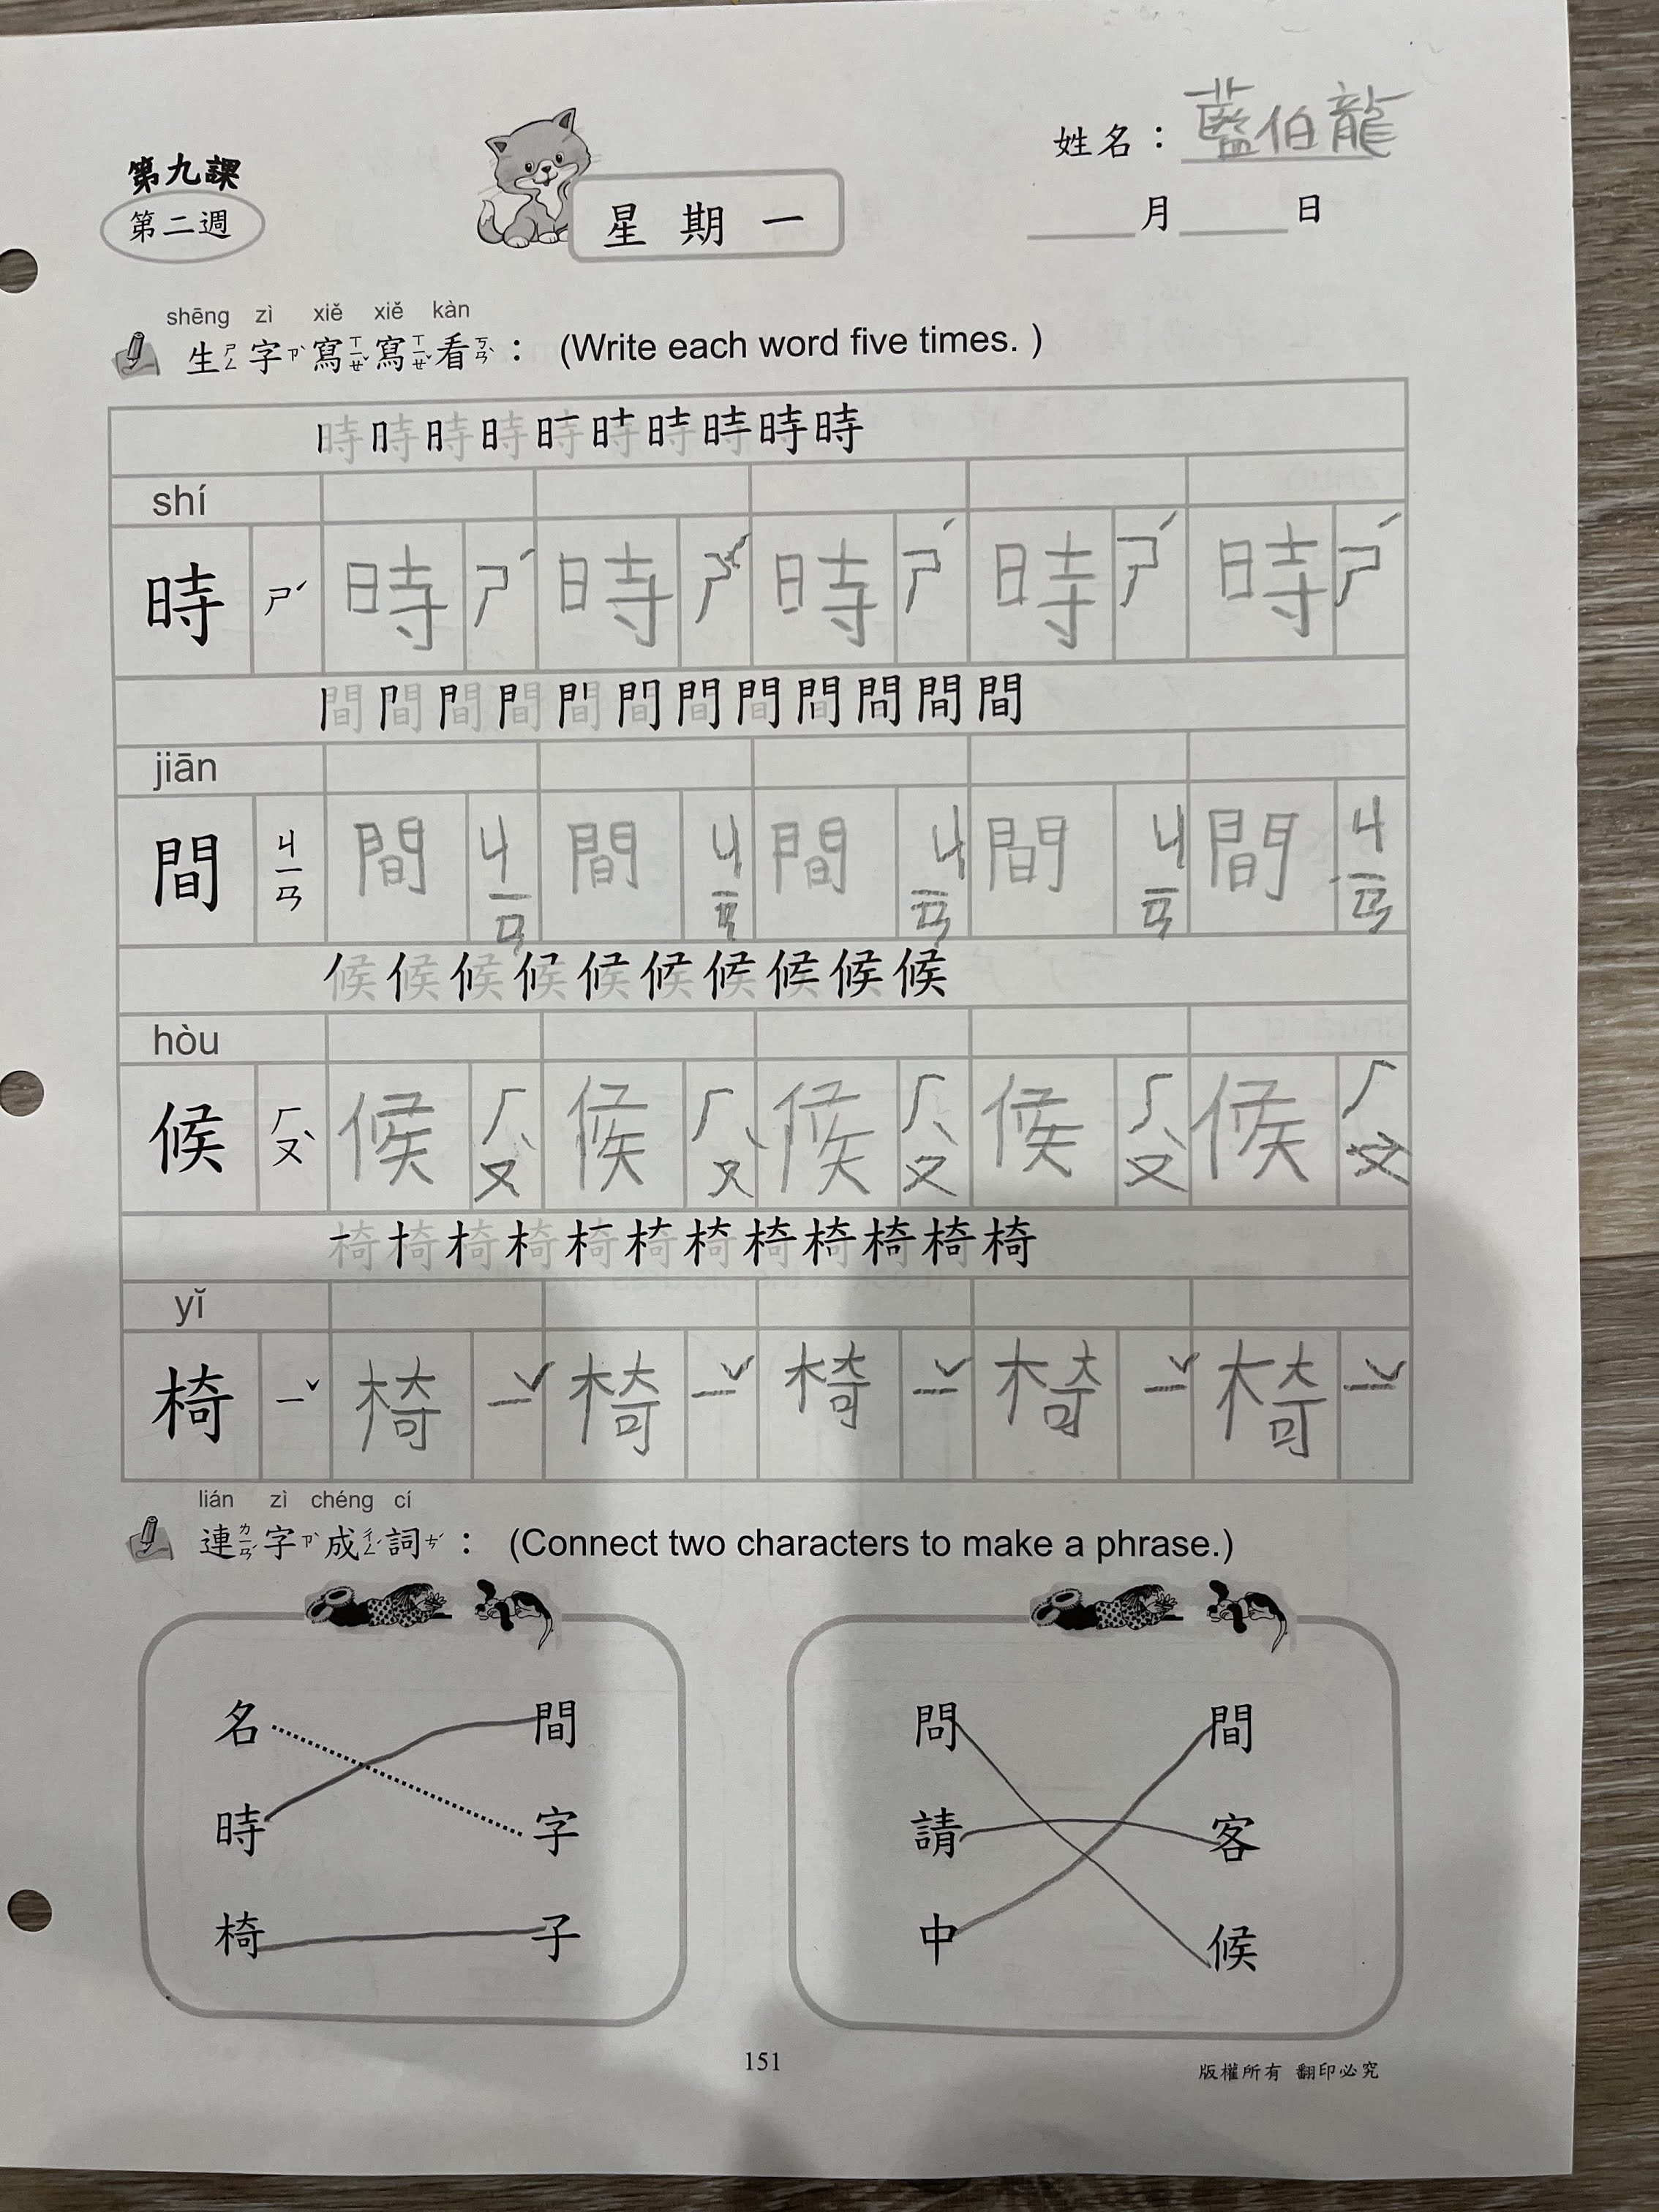 第九課
第二週
星期一
姓名：藍伯龍
月 日
shēng zì xiě xiě kàn
生ㄕㄥ字ㄗˋ寫ㄒㄧㄝˇ寫ㄒㄧㄝˇ看ㄎㄢˋ： (Write each word five times. )
時時時時時時時時時時
shí
時 ㄕˊ 時 ㄕˊ 時 ㄕˊ 時 ㄕˊ 時 ㄕˊ 時 ㄕˊ
間間間間間間間間間間間間
jiān
間 ㄐㄧㄢ 間 ㄐㄧㄢ 間 ㄐㄧㄢ 間 ㄐㄧㄢ 間 ㄐㄧㄢ 間 ㄐㄧㄢ
候候候候候候候候候候
hòu
候 ㄏㄡˋ 候 ㄏㄡˋ 候 ㄏㄡˋ 候 ㄏㄡˋ 候 ㄏㄡˋ 候 ㄏㄡ
椅椅椅椅椅椅椅椅椅椅椅椅
yǐ
椅 ㄧˇ 椅 ㄧˇ 椅 ㄧˇ 椅 ㄧˇ 椅 ㄧˇ 椅 ㄧˇ
lián zì chéng cí
連ㄌㄧㄢˊ字ㄗˋ成ㄔㄥˊ詞ㄘˊ： (Connect two characters to make a phrase.)
名 間
時 字
椅 子
問 間
請 客
中 候
151
版權所有 翻印必究